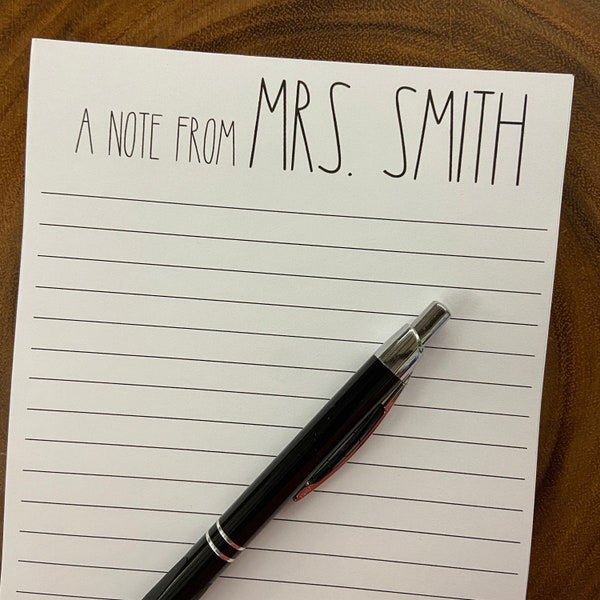 A NOTE FROM MRS. SMITH